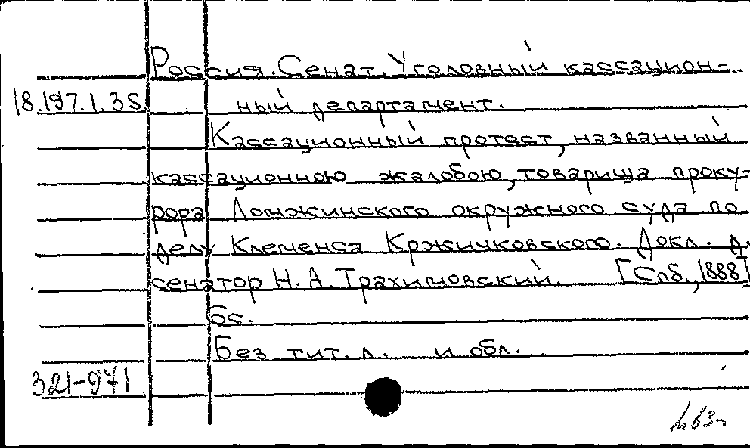 Россия. Сенат. Уголовный кассацион-
18.197.1.35 ный департамент.
Кассационный протест, названный
кассационною жалобою, товарища проку-
рора Ломжинского окружного суда по
делу Клеменса Кржичковского. Докл. д.
сенатор Н. А. Трахимовский. [Спб., 1888]
6с.
Без тит. л. и обл.
321-971